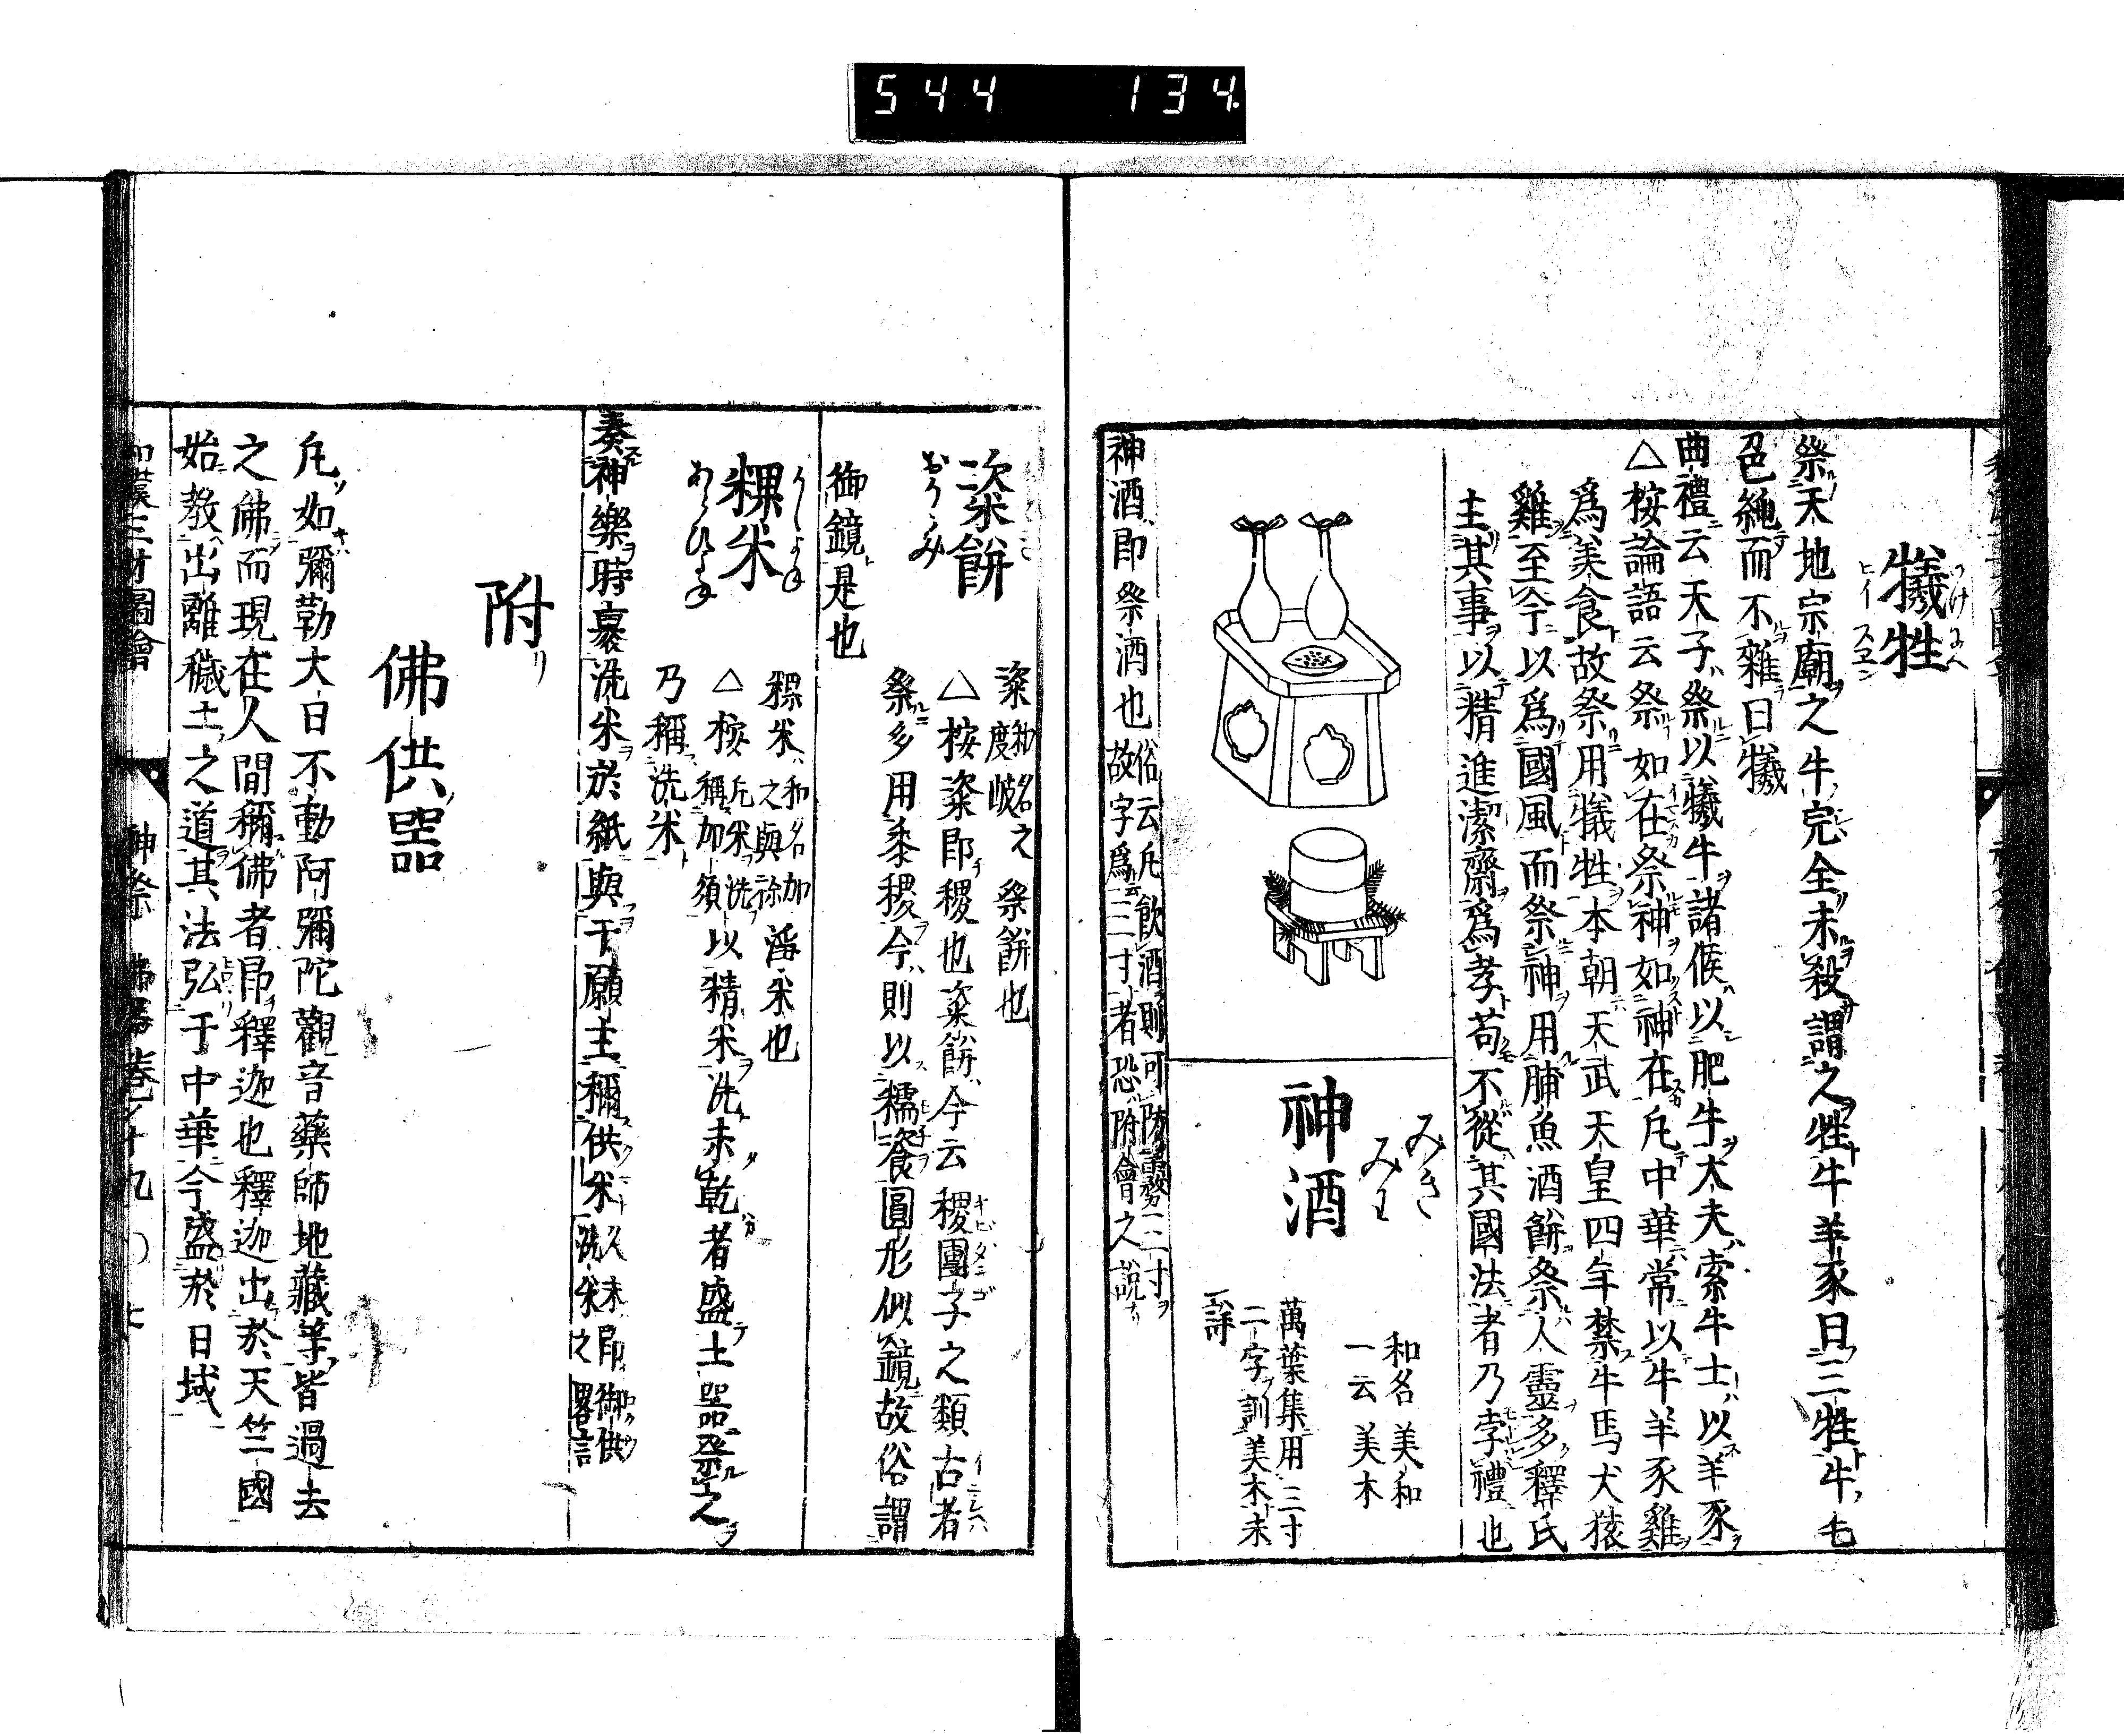 544 134
犧牲
いけにへ
ヒイ スヱン
祭天地宗廟之牛完全未殺謂之牲牛羊豕曰三牲牛毛
色純而不雜曰犧
曲禮云天子祭以犧牛諸候以肥牛大夫索牛士以羊豕
△桉論語云祭如在祭神如神在凡中華常以牛羊豕雞
爲美食故祭用犧牲本朝天武天皇四年禁牛馬犬猿
雞至今以爲國風而祭神用脯魚酒餅祭人靈多釋氏
主其事以精進潔齋爲孝苟不從其國法者乃孛禮也
神酒
みき
みわ
和名美和
一云美木
萬葉集用三寸
二字訓美木未
詳
神酒即祭酒也俗云凡飲酒則可防邪三寸
故字爲三寸者恐附會之說
粢餅
おりみ
粢和名
度岐之祭餅也
△桉粢即稷也粢餅今云稷團子之類古者
祭多用黍稷今則以糯餈圓形似鏡故俗謂
御鏡是也
粿米
くましよね
あらひよね
粿米和名加
之與祢淅米也
△桉凡米洗
稱加須以精米洗未乾者盛土器祭之
乃稱洗米
奏神樂時褁洗米於紙與于願主稱供米久未即御供
洗米之畧言
附リ
佛供器
凡如彌勒大日不動阿彌陀觀音藥師地藏等皆過去
之佛而現在人間稱佛者昂釋迦也釋迦出於天竺國
始教出離穢土之道其法弘于中華今盛於日域
和漢三才圖會 神祭 佛器卷ノ十九 〇七